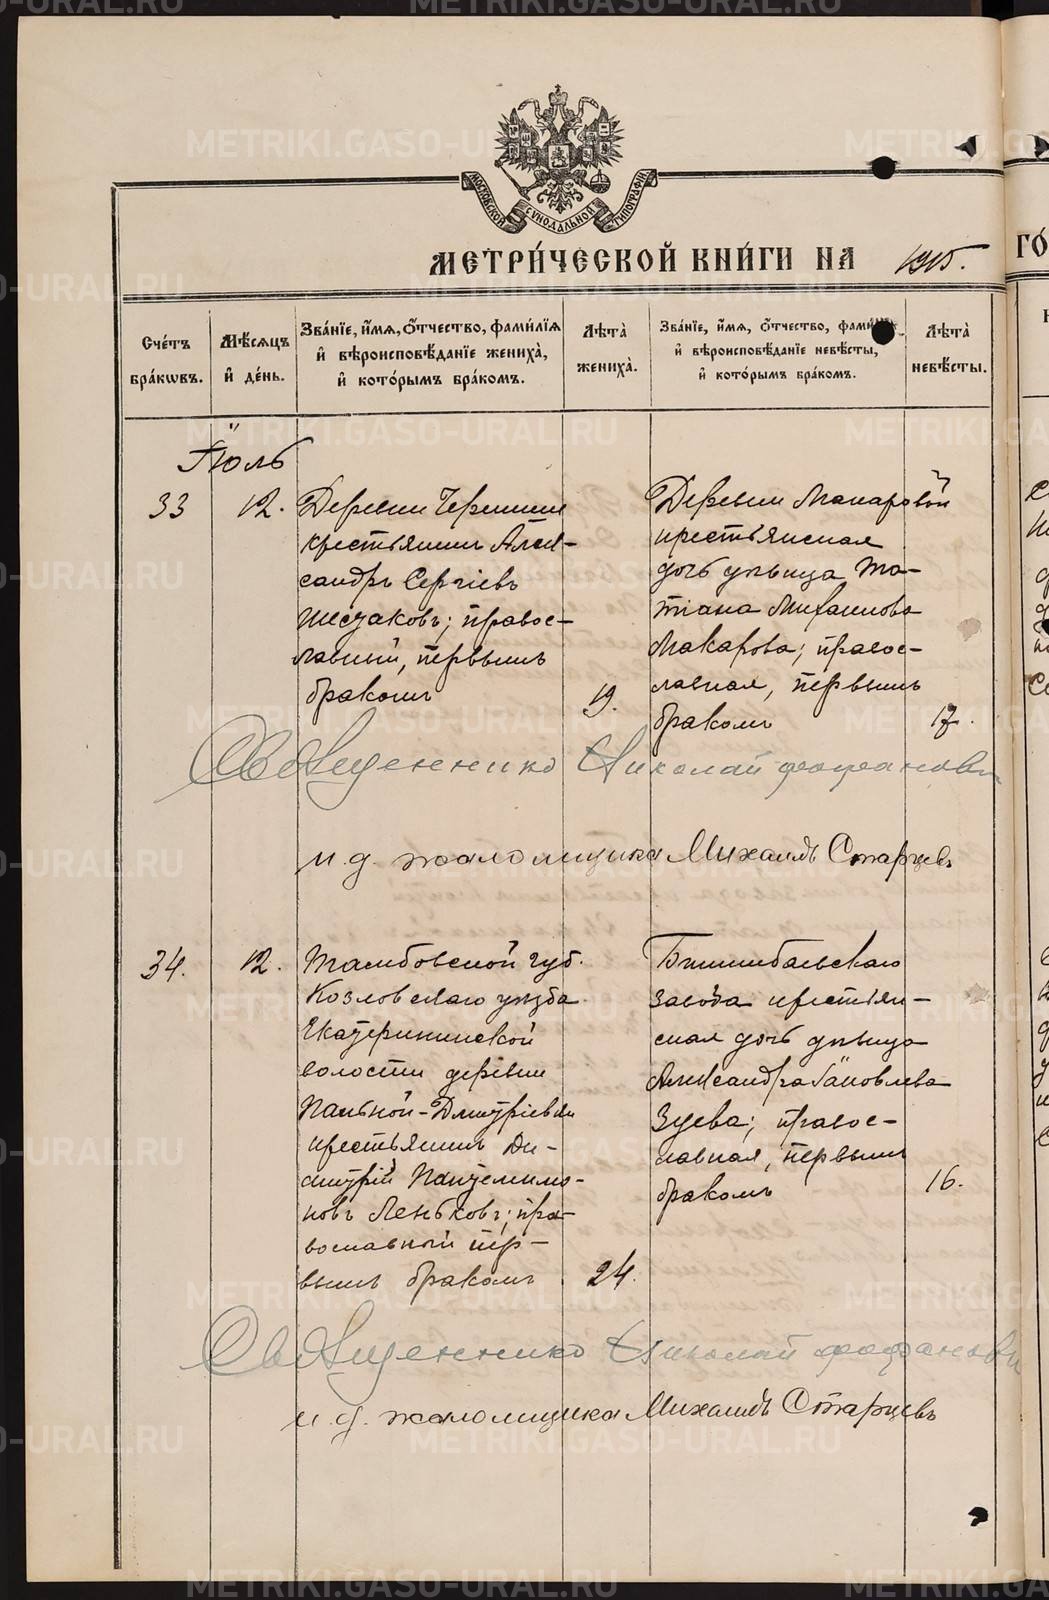 МОСКОВСКОЙ СѴНОДАЛЬНОЙ ТИПОГРАФІИ
МЕТРИ́ЧЕСКОЙ КНИ́ГИ НА 1915.
Сче́тъ бра́кѡвъ.
Мѣ́сяцъ и де́нь.
Зва́нїе, и́мѧ, ѻ҆́тчество, фами́лїѧ и҆ вѣроисповѣ́данїе жениха̀, и҆ кото́рымъ бра́комъ.
Лѣта̀ жениха̀.
Зва́нїе, и́мѧ, ѻ҆́тчество, и҆ вѣроисповѣ́данїе невѣ́сты, и҆ кото́рымъ бра́комъ.
Лѣта̀ невѣ́сты.
Іюль
33
12.
Деревни
крестьянинъ Алек-
сандръ Сергіевъ
Шестаковъ; правос-
лавный, первымъ
бракомъ
19.
Деревни Макаровой
крестьянская
дочь дѣвица Та-
тіана Михаилова
Макарова; правос-
лавная, первымъ
бракомъ
17.
Священникъ Николай
и. д. псаломщика Михаилъ Старцевъ
34.
12.
Тамбовской губ.
Козловскаго уѣзда
Екатерининской
волости деревни
Дмитріевки
крестьянинъ Ди-
митрій Пантелимо-
новъ Леньковъ; пра-
вославный пер-
вымъ бракомъ
24.
Билимбаевскаго
завода крестьян-
ская дочь дѣвица
Александра Іаковлева
Зуева; правос-
лавная, первымъ
бракомъ
16.
Священникъ Николай
и. д. псаломщика Михаилъ Старцевъ
METRIKI.GASO-URAL.RU